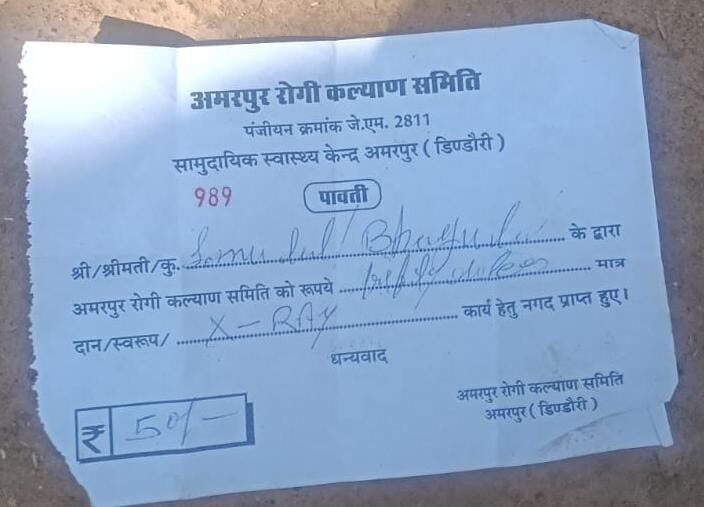 अमरपुर रोगी कल्याण समिति
पंजीयन क्रमांक जे.एम. 2811
सामुदायिक स्वास्थ्य केन्द्र अमरपुर ( डिण्डौरी )
989 पावती
श्री/श्रीमती/कु. के द्वारा
अमरपुर रोगी कल्याण समिति को रूपये मात्र
दान/स्वरूप/ X-RAY कार्य हेतु नगद प्राप्त हुए।
धन्यवाद
अमरपुर रोगी कल्याण समिति
अमरपुर ( डिण्डौरी )
₹ 50/-